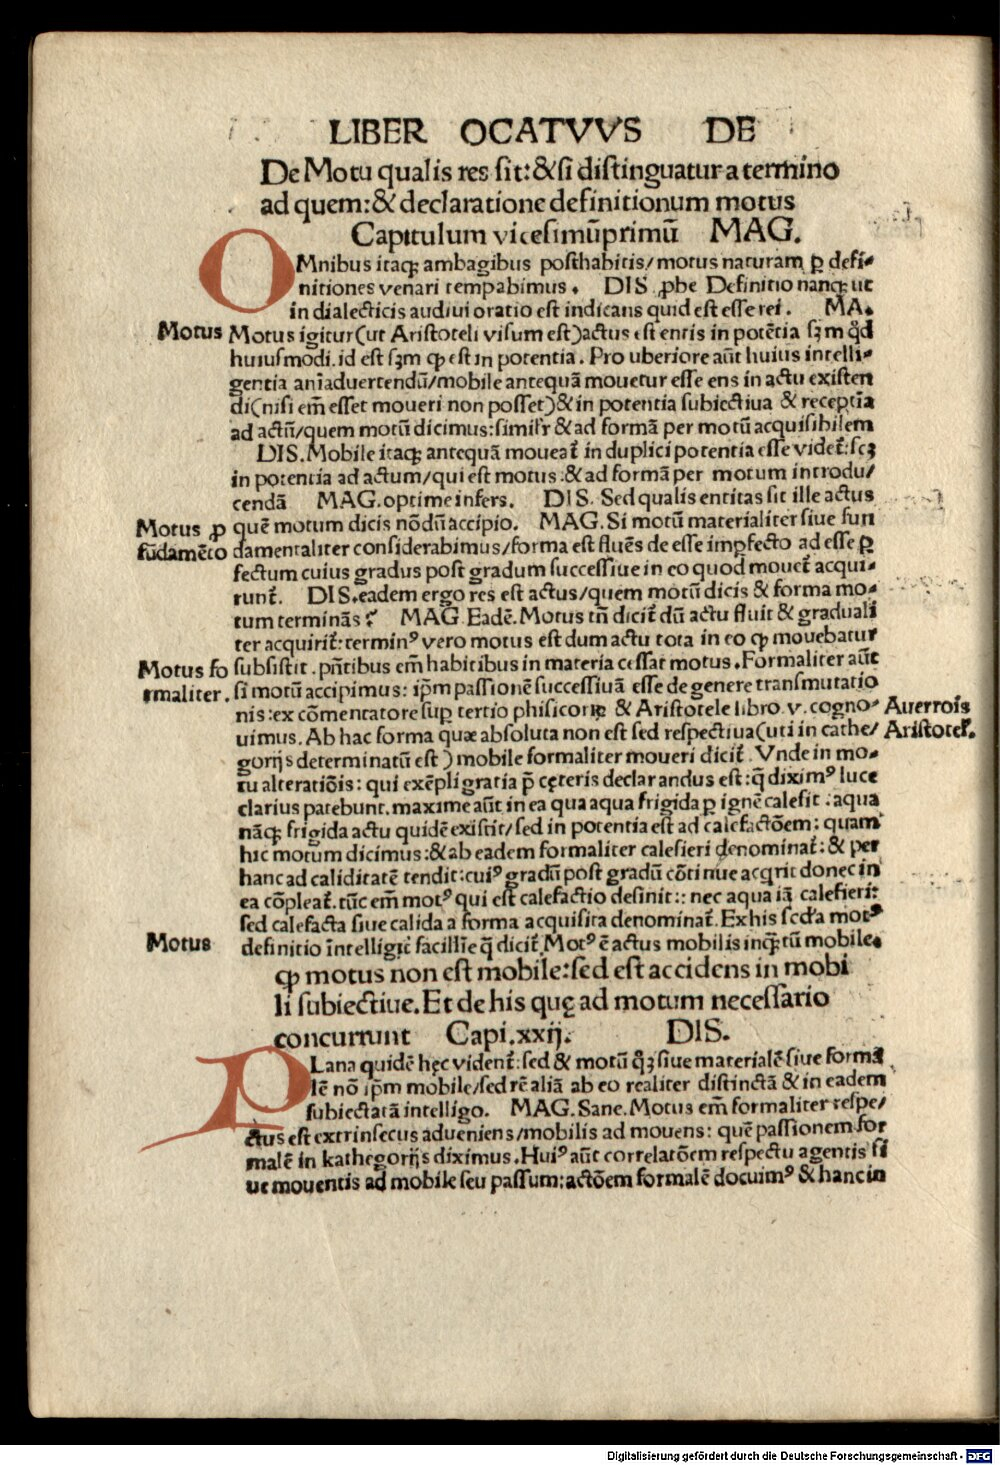 LIBER OCATVVS DE
De Motu qualis res sit: & si distinguatur a termino
ad quem: & declaratione definitionum motus
Capitulum vicesimũprimũ MAG.
OMnibus itaqꝫ ambagibus posthabitis/motus naturam ꝑ defi-
nitiones venari temptabimus. DIS ꝓbe Definitio nanqꝫ ut
in dialecticis audiui oratio est indicans quid est esse rei. MA.
Motus
Motus igitur(ut Aristoteli visum est)actus est entis in potẽtia sꝫm qđ
huiusmodi. id est sꝫm ꝙ est in potentia. Pro uberiore aũt huius intelli-
gentia anĩaduertendũ/mobile antequã mouetur esse ens in actu existen
di(nisi em̃ esset moueri non posset)& in potentia subiectiua & receptĩa
ad actũ/quem motũ dicimus: simil'r & ad formã per motũ acquisibilem
DIS. Mobile itaqꝫ antequã moueat̃ in duplici potentia esse videt̃: scꝫ
in potentia ad actum/qui est motus: & ad formã per motum introdu/
cendã MAG. optime infers. DIS. Sed qualis entitas sit ille actus
Motus ꝓ
fũdamẽto
quẽ motum dicis nõdũ accipio. MAG. Si motũ materialiter siue fun
damentaliter considerabimus/forma est fluẽs de esse imꝑfecto ad esse ꝑ
fectum cuius gradus post gradum successiue in eo quod mouet̃ acqui-
runt̃. DIS. eadem ergo res est actus/quem motũ dicis & forma mo-
tum terminãs? MAG Eadẽ. Motus tñ dicit̃ dũ actu fluit & graduali
ter acquirit̃: terminꝰ vero motus est dum actu tota in eo ꝙ mouebatur
Motus fo
rmaliter.
subsistit. pñtibus em̃ habitibus in materia cessat motus. Formaliter aũt
si motũ accipimus: ip̃m passionẽ successiuã esse de genere transmutatio
nis: ex cõmentatore suꝑ tertio phisicoꝝ & Aristotele libro .v. cogno-
Auerrois
Aristotel'.
uimus. Ab hac forma quæ absoluta non est sed respectiua(uti in cathe/
gorijs determinatũ est) mobile formaliter moueri dicit̃. Vnde in mo-
tu alteratiõis: qui exẽpli gratia p̃ cęteris declarandus est: q̃ diximꝰ luce
clarius patebunt. maxime aũt in ea qua aqua frigida ꝑ ignẽ calefit: aqua
nãqꝫ frigida actu quidẽ existit/sed in potentia est ad calefactõem: quam
hic motum dicimus: & ab eadem formaliter calefieri denominat̃: & per
hanc ad caliditatẽ tendit: cuiꝰ gradũ post gradũ cõtinue acqrit donec in
ea cõpleat̃. tũc em̃ motꝰ qui est calefactio desinit: : nec aqua iã calefieri:
sed calefacta siue calida a forma acquisita denominat̃. Ex his scd'a motꝰ
Motus
definitio ĩntelligit̃ facillĩe q̃ dicit̃. Motꝰ ẽ actus mobilis inqꝫtũ mobile.
ꝙ motus non est mobile: sed est accidens in mobi
li subiectiue. Et de his quę ad motum necessario
concurrunt Capi. xxij. DIS.
PLana quidẽ hęc vident̃: sed & motũ qꝫ siue materialẽ siue formã
lẽ nõ ip̃m mobile/sed rẽ aliã ab eo realiter distinctã & in eadem
subiectatã intelligo. MAG. Sane. Motus em̃ formaliter respe/
ctus est extrinsecus adueniens/mobilis ad mouens: quẽ passionem for
malẽ in kathegorijs diximus. Huiꝰ aũt correlatõem respectu agentis si
ue mouentis ad mobile seu passum: actõem formalẽ docuimꝰ & hanc in
Digitalisierung gefördert durch die Deutsche Forschungsgemeinschaft - DFG